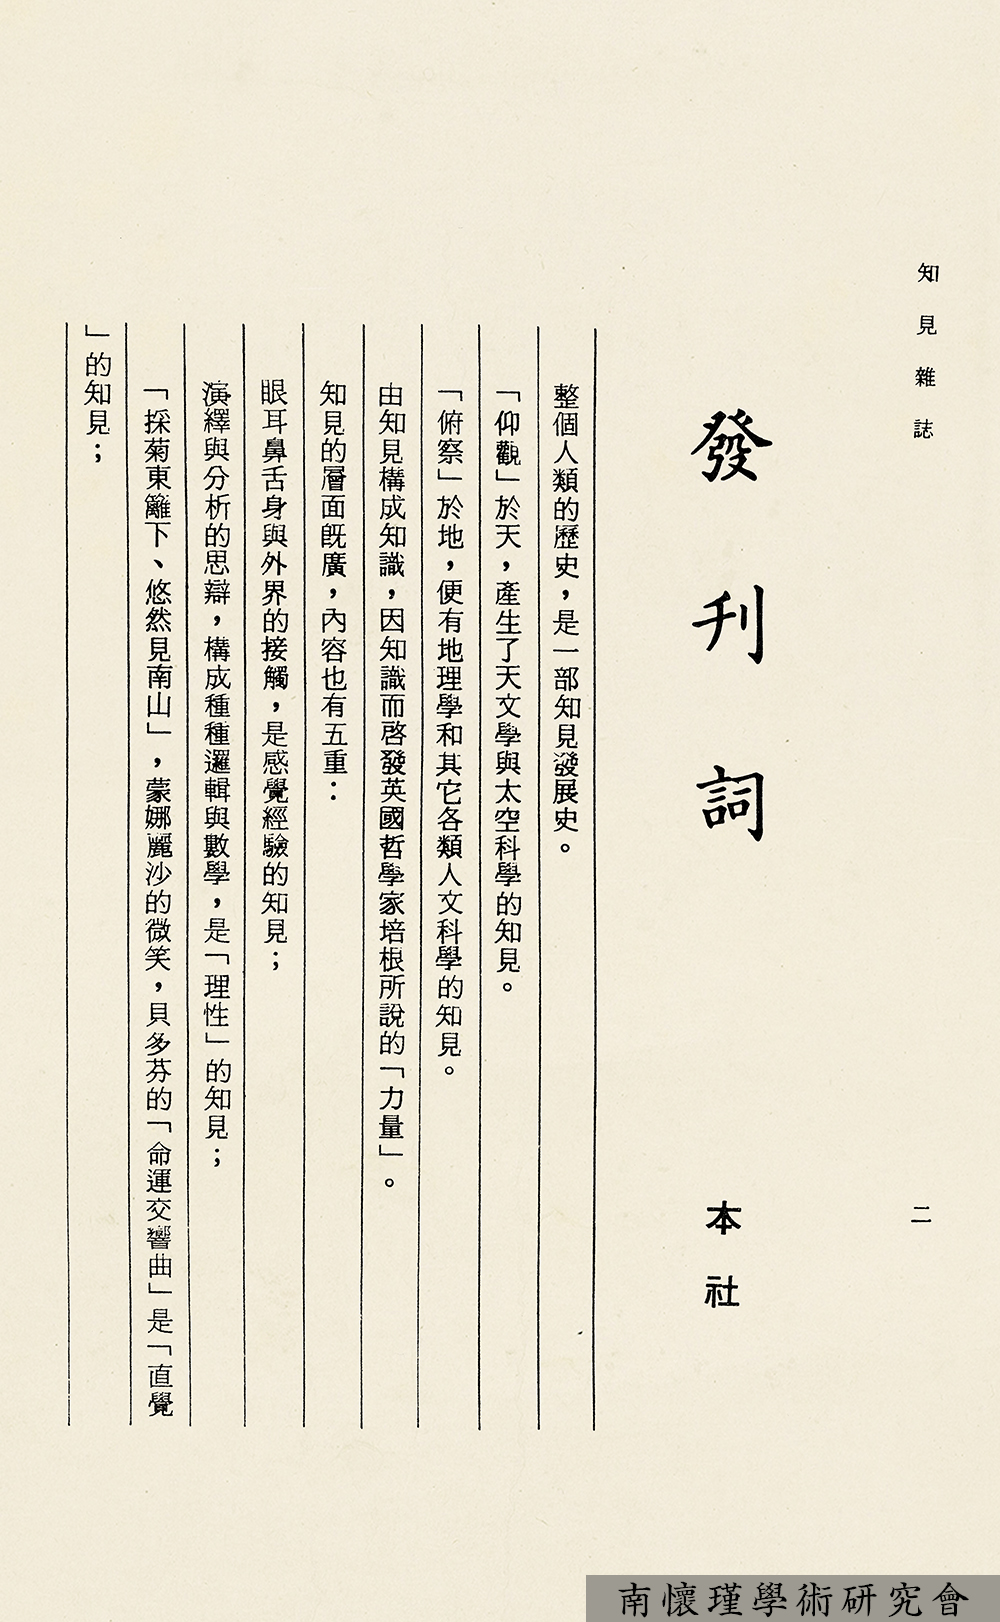 知見雜誌
二
發刊詞
本社
整個人類的歷史，是一部知見發展史。
「仰觀」於天，產生了天文學與太空科學的知見。
「俯察」於地，便有地理學和其它各類人文科學的知見。
由知見構成知識，因知識而啓發英國哲學家培根所說的「力量」。
知見的層面旣廣，內容也有五重：
眼耳鼻舌身與外界的接觸，是感覺經驗的知見；
演繹與分析的思辯，構成種種邏輯與數學，是「理性」的知見；
「採菊東籬下、悠然見南山」，蒙娜麗沙的微笑，貝多芬的「命運交響曲」是「直覺
」的知見；
南懷瑾學術研究會